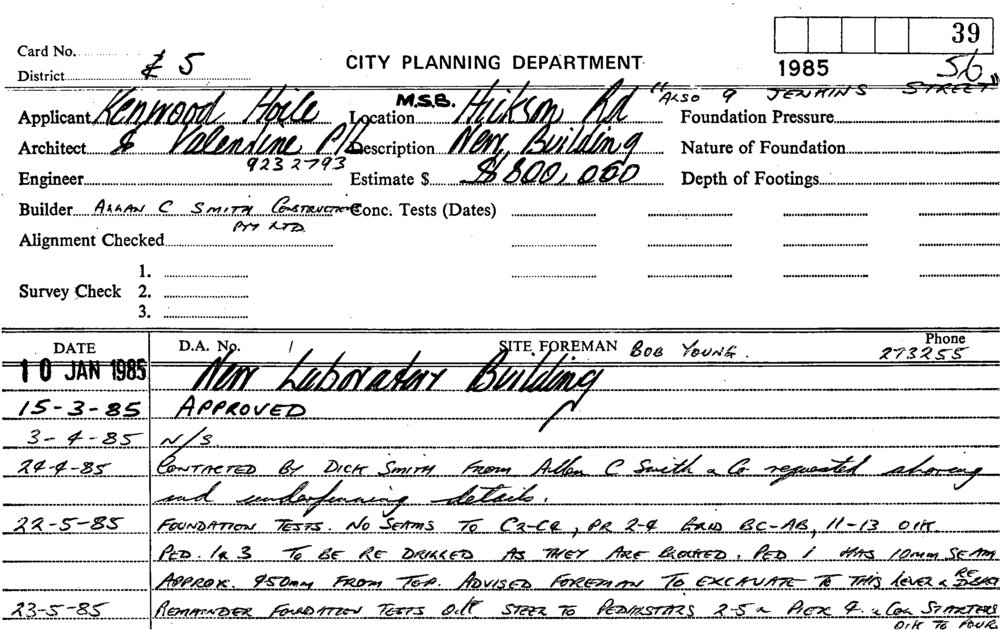 39
Card No.
£ 5
CITY PLANNING DEPARTMENT
1985
56
District
"ALSO 9 JENKINS STREET"
Applicant Kenwood Hoile Location M.S.B. Hickson Rd Foundation Pressure
Architect & Valentine P/L Description New Building Nature of Foundation
9232793
Engineer Estimate $ $800,000 Depth of Footings
Builder ALLAN C SMITH CONSTRUCTIONS Conc. Tests (Dates)
PTY LTD
Alignment Checked
1.
Survey Check 2.
3.
DATE D.A. No. SITE FOREMAN BOB YOUNG. Phone
273255
10 JAN 1985 New Laboratory Building
15-3-85 APPROVED
3-4-85 N/S
24-4-85 CONTACTED BY DICK SMITH FROM Allen C Smith & Co requested shoring
and underpinning details.
22-5-85 FOUNDATION TESTS. NO SEAMS TO C2-C4, PR 2-4 GRID BC-AB, 11-13 O/K
PED. 1 & 3 TO BE RE DRILLED AS THEY ARE BLOCKED. PED 1 HAS 10mm SEAM
APPROX. 450mm FROM TOP. ADVISED FOREMAN TO EXCAVATE TO THIS LEVEL &
23-5-85 REMAINDER FOUNDATION TESTS O/K STEEL TO PEDASTARS 2-5 & PIER 4. & COL STARTERS
O/K TO POUR